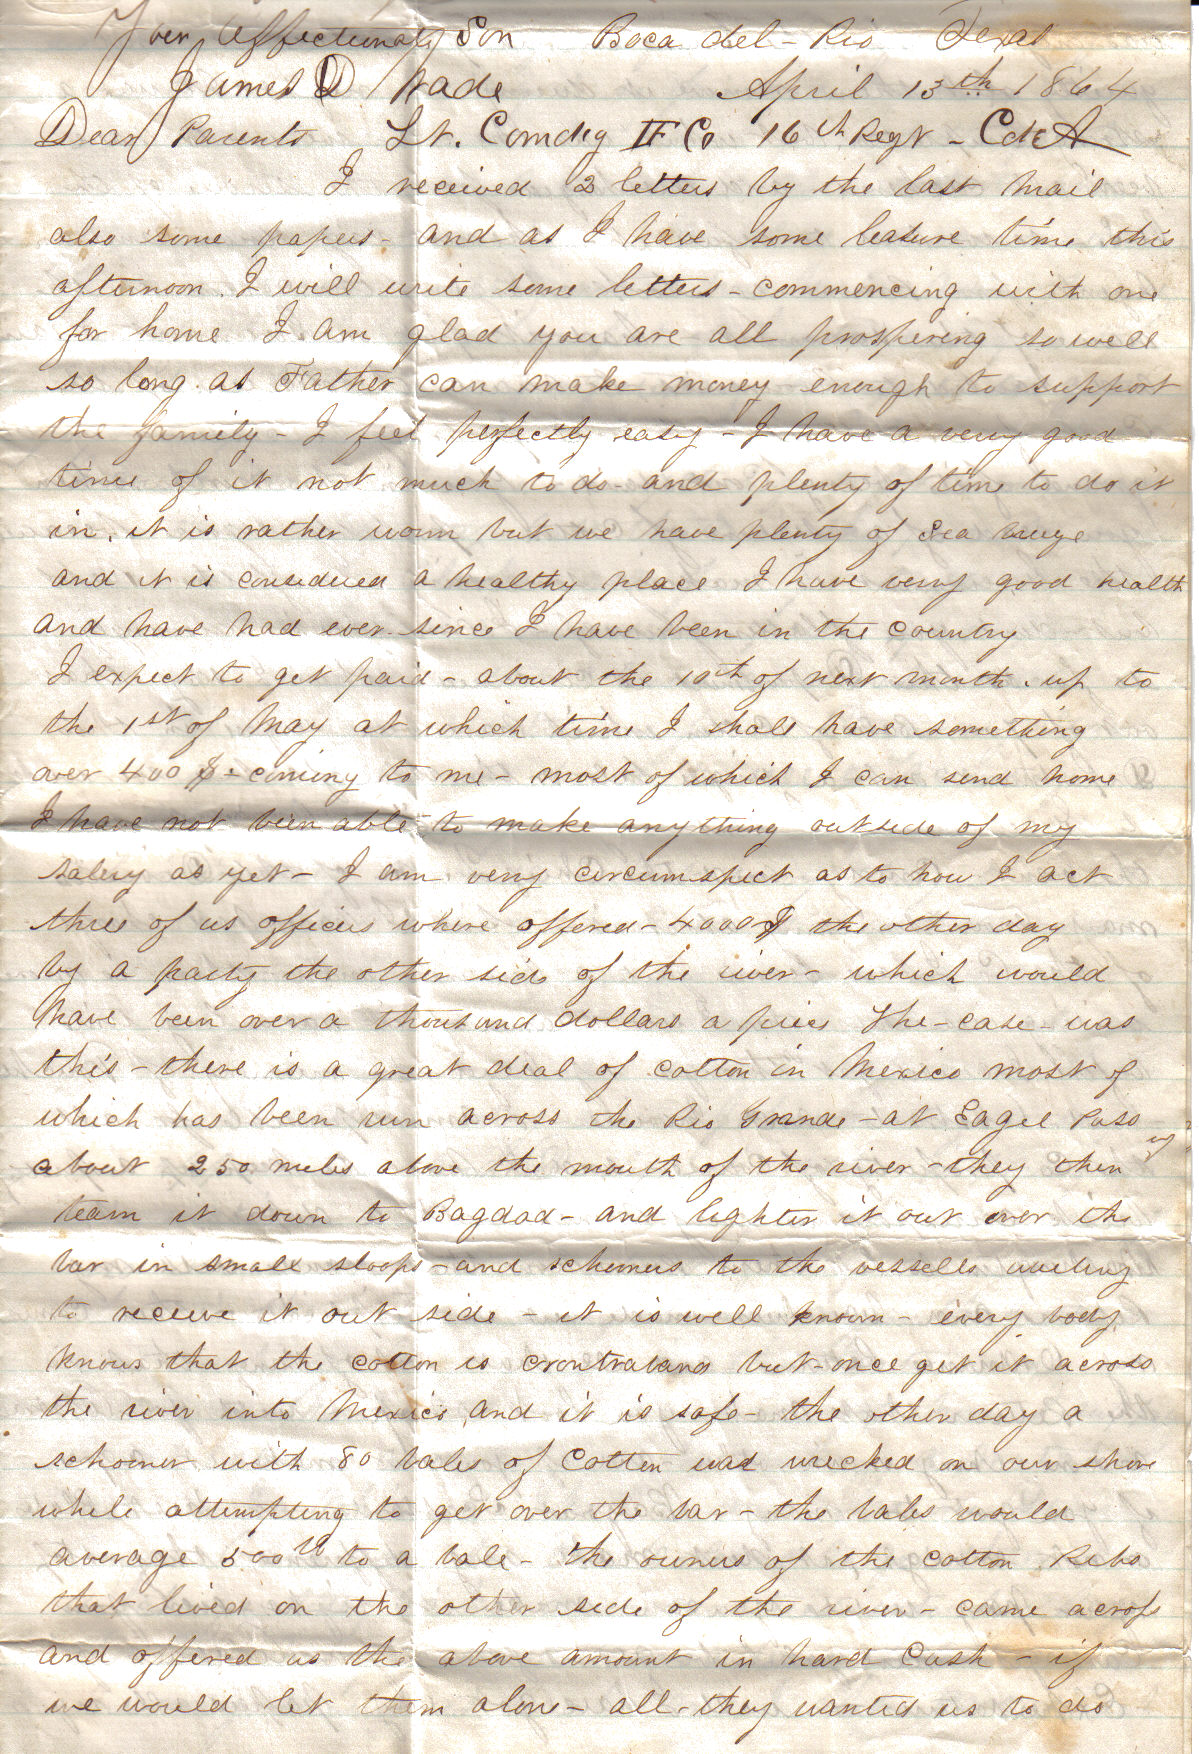 Your Affectionate Son Boca del-Rio Texas
James D Wade April 13th 1864
Dear Parents Lt. Comdg F Co 16th Regt - Cd'A
I received 2 letters by the last mail
also some papers - and as I have some leasure time this
afternoon. I will write some letters - commencing with one
for home I am glad you are all prospering so well
so long as Father can make money enough to support
the family - I feel perfectly easy - I have a very good
time of it not much to do - and plenty of time to do it
in. it is rather warm but we have plenty of Sea breeze
and it is considered a healthy place I have very good health
and have had ever since I have been in the country
I expect to get paid - about the 10th of next month. up to
the 1st of May at which time I shall have something
over 400 $ - coming to me - most of which I can send home
I have not been able to make anything outside of my
salery as yet - I am very circumspect as to how I act
three of us officers where offered - 4000 $ the other day
by a party the other side of the river - which would
have been over a thousand dollars a piece The - case - was
this - there is a great deal of cotton in Mexico most of
which has been run across the Rio Grande - at Eagel Pass
about 250 miles above the mouth of the river - they then
team it down to Bagdad - and lighter it out over the
bar in small sloops - and schoners to the vessells waiting
to receive it out side - it is well known - every body
knows that the cotton is crontraband but - once get it across
the river into Mexico and it is safe - the other day a
schooner with 80 bales of Cotton was wrecked on our shore
while attempting to get over the bar - the bales would
average 500 lb to a bale - the owners of the cotton Rebs
that lived on the other side of the river - came across
and offered us the above amount in hard Cash - if
we would let them alone - all - they wanted us to do